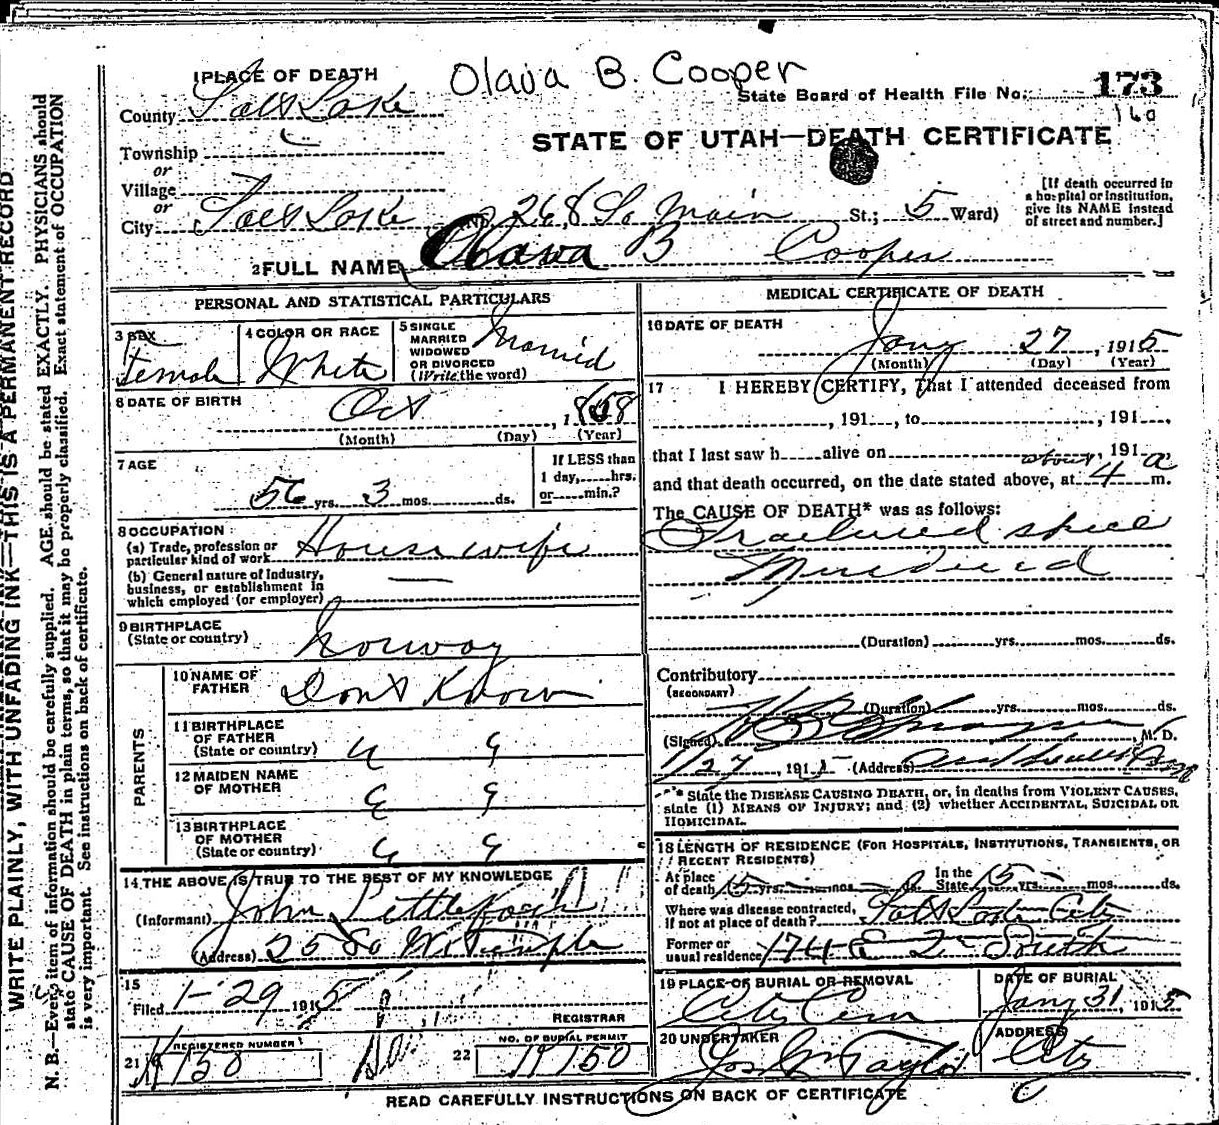 Olava B. Cooper
1 PLACE OF DEATH
State Board of Health File No. 173
160
County Salt Lake
STATE OF UTAH—DEATH CERTIFICATE
Township
or
Village
or
City Salt Lake No. 268 So Main St.; 5 Ward)
[If death occurred in a hospital or institution, give its NAME instead of street and number.]
2 FULL NAME Olava B Cooper
PERSONAL AND STATISTICAL PARTICULARS
3 SEX Female
4 COLOR OR RACE White
5 SINGLE MARRIED WIDOWED OR DIVORCED (Write the word) Married
6 DATE OF BIRTH Oct, 1858
(Month) (Day) (Year)
7 AGE 56 yrs. 3 mos. ds.
If LESS than 1 day, hrs. or min.?
8 OCCUPATION
(a) Trade, profession or particular kind of work Housewife
(b) General nature of industry, business, or establishment in which employed (or employer) —
9 BIRTHPLACE (State or country) Norway
PARENTS
10 NAME OF FATHER Dont Know
11 BIRTHPLACE OF FATHER (State or country)
12 MAIDEN NAME OF MOTHER
13 BIRTHPLACE OF MOTHER (State or country)
14 THE ABOVE IS TRUE TO THE BEST OF MY KNOWLEDGE
(Informant) John
(Address) 25 So W Temple
15 Filed 1-29 1915
REGISTRAR
21 REGISTERED NUMBER H150
22 NO. OF BURIAL PERMIT H150
MEDICAL CERTIFICATE OF DEATH
16 DATE OF DEATH
Jany 27, 1915
(Month) (Day) (Year)
17 I HEREBY CERTIFY, That I attended deceased from
, 191 , to , 191
that I last saw h alive on , 191
and that death occurred, on the date stated above, at about 4 a m.
The CAUSE OF DEATH* was as follows:
Fractured skull
Murdered
(Duration) yrs. mos. ds.
Contributory (SECONDARY)
(Duration) yrs. mos. ds.
(Signed) , M. D.
1/27, 1915 (Address)
* State the DISEASE CAUSING DEATH, or, in deaths from VIOLENT CAUSES, state (1) MEANS OF INJURY; and (2) whether ACCIDENTAL, SUICIDAL OR HOMICIDAL.
18 LENGTH OF RESIDENCE (FOR HOSPITALS, INSTITUTIONS, TRANSIENTS, OR RECENT RESIDENTS)
At place of death 15 yrs. mos. ds. In the State 15 yrs. mos. ds.
Where was disease contracted, if not at place of death? Salt Lake City
Former or usual residence 174 E 2 South
19 PLACE OF BURIAL OR REMOVAL City Cem
DATE OF BURIAL Jany 31, 1915
20 UNDERTAKER Jos Wm Taylor
ADDRESS City
READ CAREFULLY INSTRUCTIONS ON BACK OF CERTIFICATE
WRITE PLAINLY, WITH UNFADING INK—THIS IS A PERMANENT RECORD
N. B.—Every item of information should be carefully supplied. AGE should be stated EXACTLY. PHYSICIANS should
state CAUSE OF DEATH in plain terms, so that it may be properly classified. Exact statement of OCCUPATION
is very important. See instructions on back of certificate.